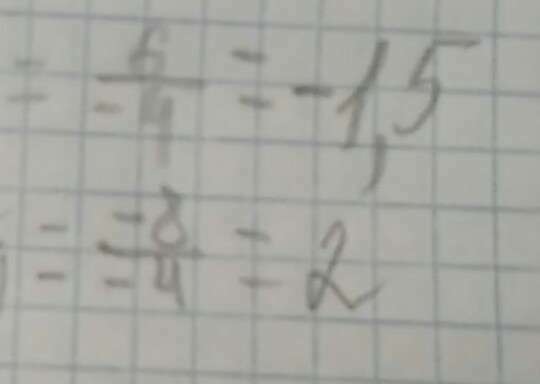 = 6/-4 = -1,5
= -8/-4 = 2